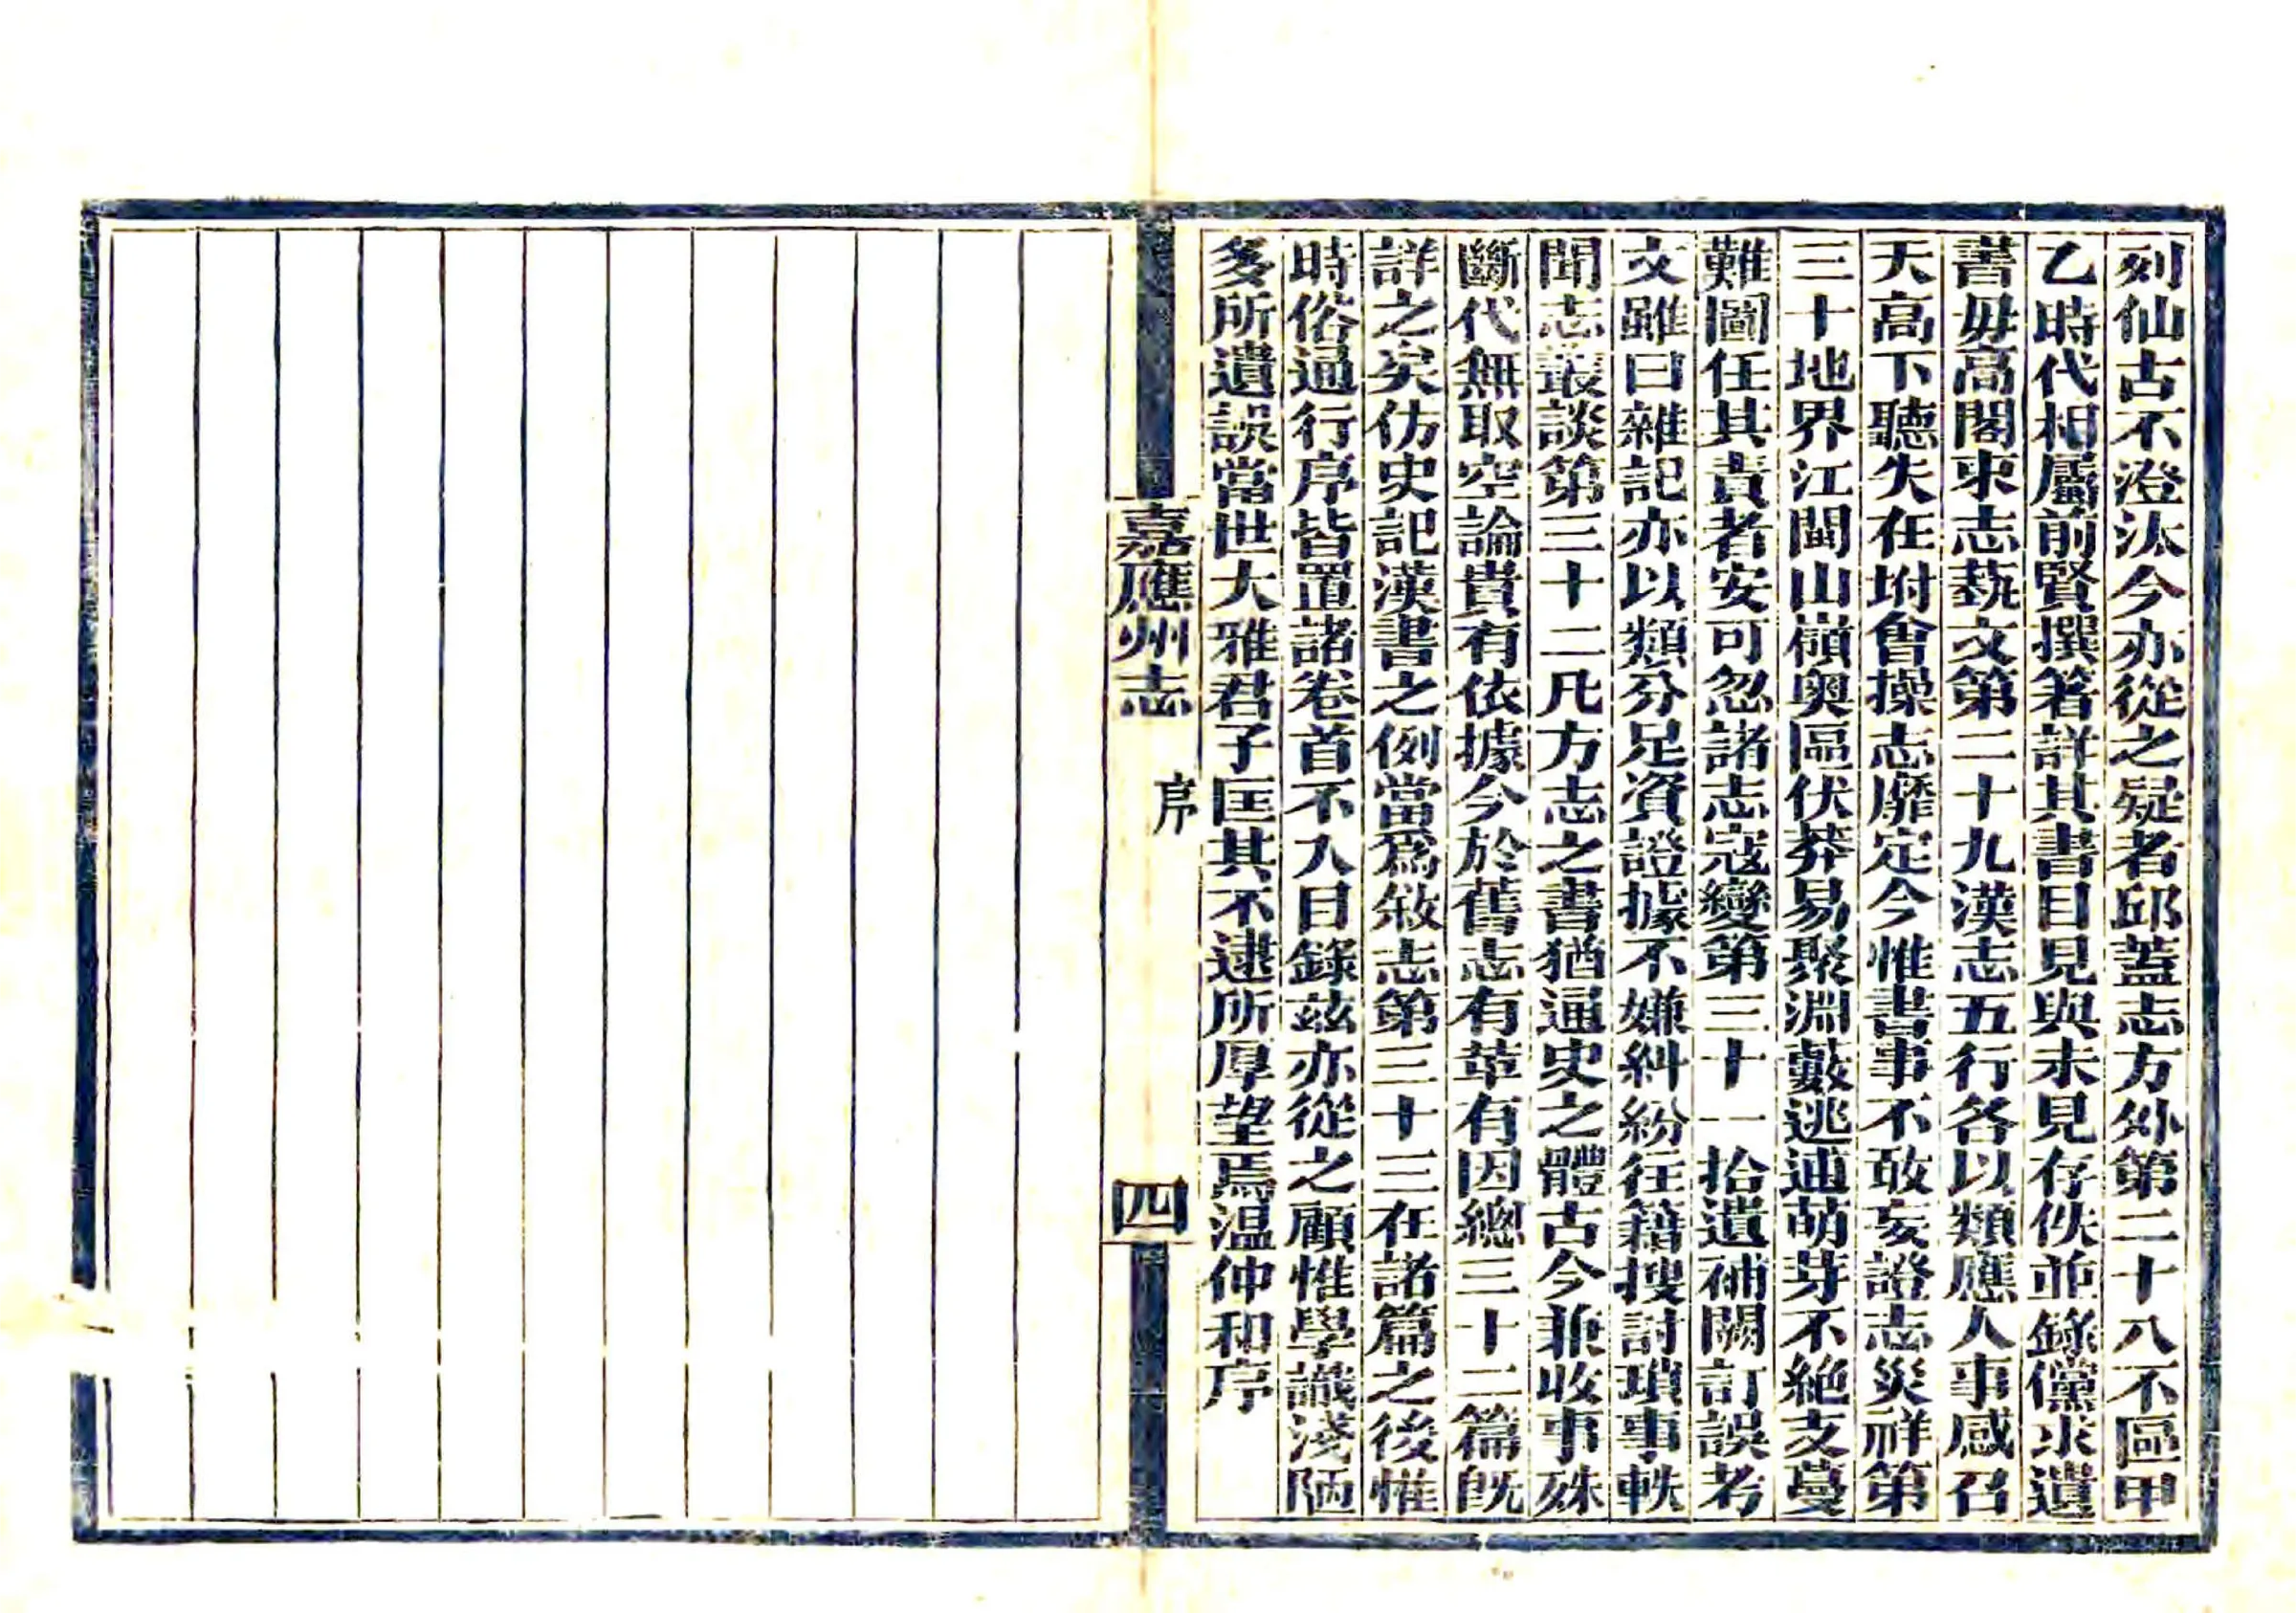 列仙古不澄汰今亦從之疑者邱蓋志方外第二十八不區甲
乙時代相屬前賢撰箸詳其書目見與未見存佚並錄儻求遺
書毋高閣束志藝文第二十九漢志五行各以類應人事感召
天高下聽失在坿會操志靡定今惟書事不敢妄證志災祥第
三十地界江閩山嶺奧區伏莽易聚淵藪逃逋萌芽不絕支蔓
難圖任其責者安可忽諸志寇變第三十一拾遺補闕訂誤考
文雖曰雜記亦以類分足資證據不嫌糾紛往籍搜討瑣事軼
聞志叢談第三十二凡方志之書猶通史之體古今兼收事殊
斷代無取空論貴有依據今於舊志有革有因總三十二篇既
詳之矣仿史記漢書之例當爲敘志第三十三在諸篇之後惟
時俗通行序皆置諸卷首不入目錄茲亦從之顧惟學識淺陋
多所遺誤當世大雅君子匡其不逮所厚望焉溫仲和序
嘉應州志
序
四